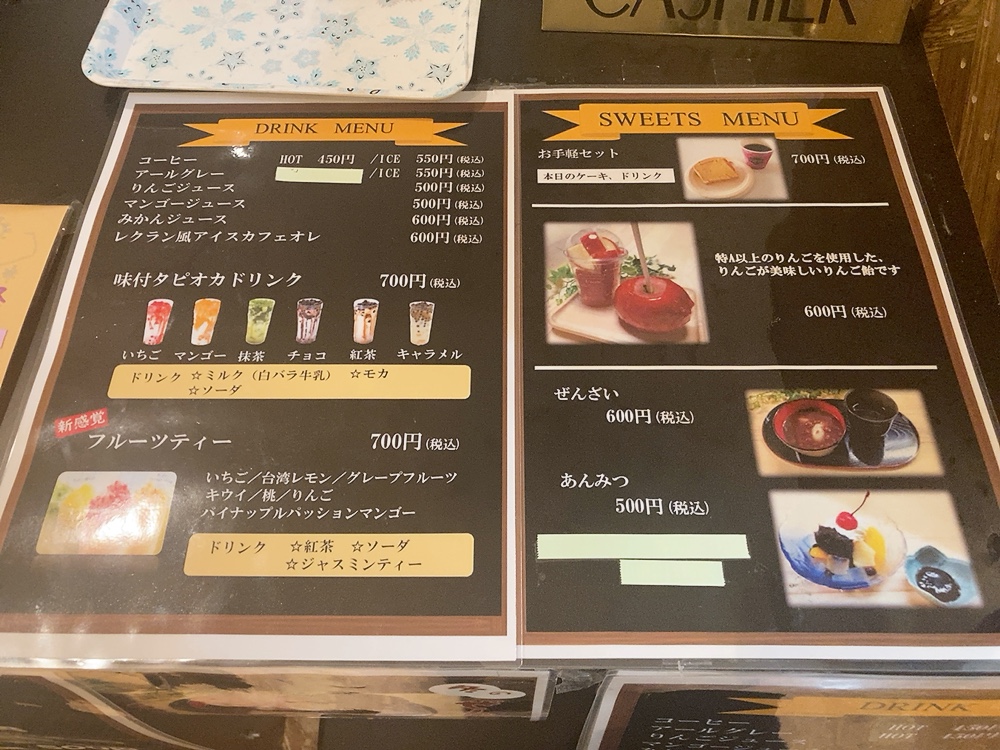 CASHIER
DRINK MENU
コーヒー HOT 450円 /ICE 550円(税込)
アールグレー /ICE 550円(税込)
りんごジュース 500円(税込)
マンゴージュース 500円(税込)
みかんジュース 600円(税込)
レクラン風アイスカフェオレ 600円(税込)
味付タピオカドリンク 700円(税込)
いちご マンゴー 抹茶 チョコ 紅茶 キャラメル
ドリンク ☆ミルク(白バラ牛乳) ☆モカ
☆ソーダ
新感覚
フルーツティー 700円(税込)
いちご/台湾レモン/グレープフルーツ
キウイ/桃/りんご
パイナップルパッションマンゴー
ドリンク ☆紅茶 ☆ソーダ
☆ジャスミンティー
SWEETS MENU
お手軽セット 700円(税込)
本日のケーキ、ドリンク
特A以上のりんごを使用した、
りんごが美味しいりんご飴です
600円(税込)
ぜんざい
600円(税込)
あんみつ
500円(税込)
DRINK
コーヒー HOT 450円
アールグレー HOT 450円
りんごジュース